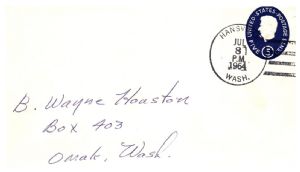 UNITED STATES POSTAGE
JUL
8
P.M.
1964
WASH.
B. Wayne Houston
Box 403
Omak, Wash.